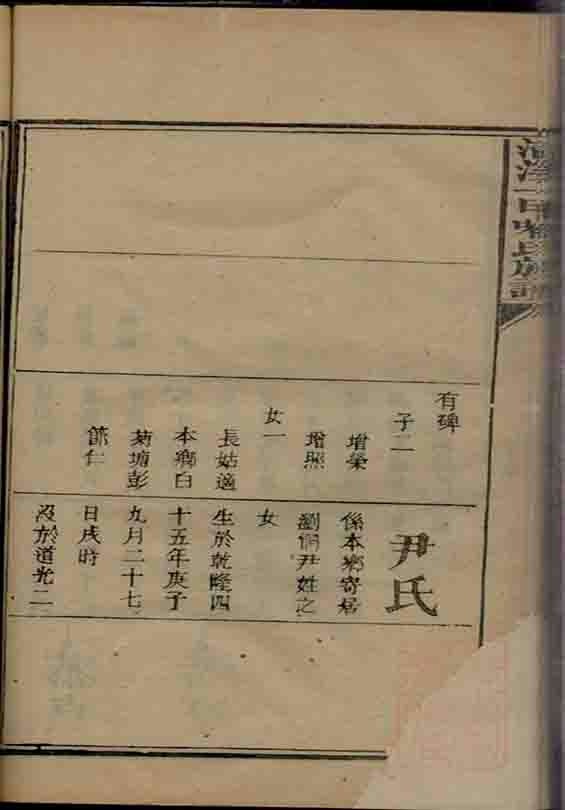 氏族譜
有碑
子二
增榮
增照
女一
長姑適
本鄉白
塘彭
節仁
尹氏
係本鄉寄居
尹姓之
女
生於乾隆四
十五年庚子
九月二十七
日戌時
沒於道光二